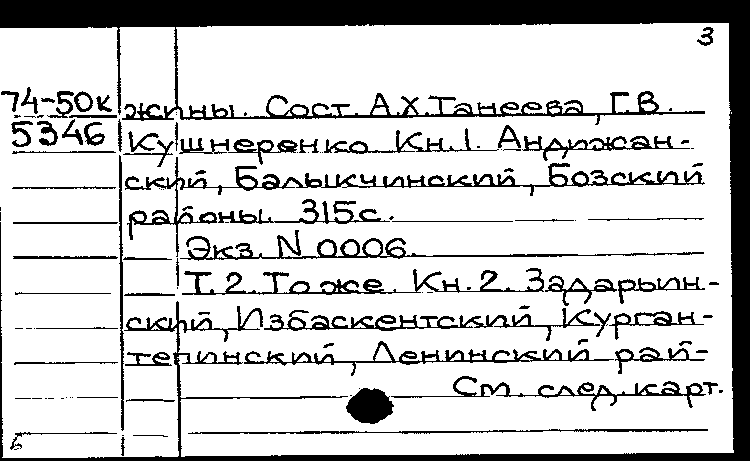 3
74-50к жины. Сост. А.Х.Танеева, Г.В.
5346 Кушнеренко. Кн.1. Андижан-
ский, Балыкчинский, Бозский
районы. 315с.
Экз. N 0006.
Т.2. То же. Кн.2. Задарьин-
ский, Избаскентский, Курган-
тепинский, Ленинский рай-
См. след. карт.
Б